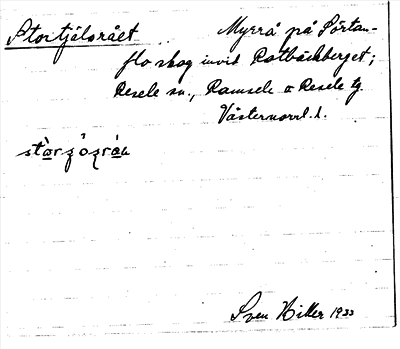 Stortjälsrået Myrrå på Sörtan-
flo skog invid Rotbäckberget;
Resele sn., Ramsele o Resele tg.
Västernorrl. l.
Sven Hiller 1933